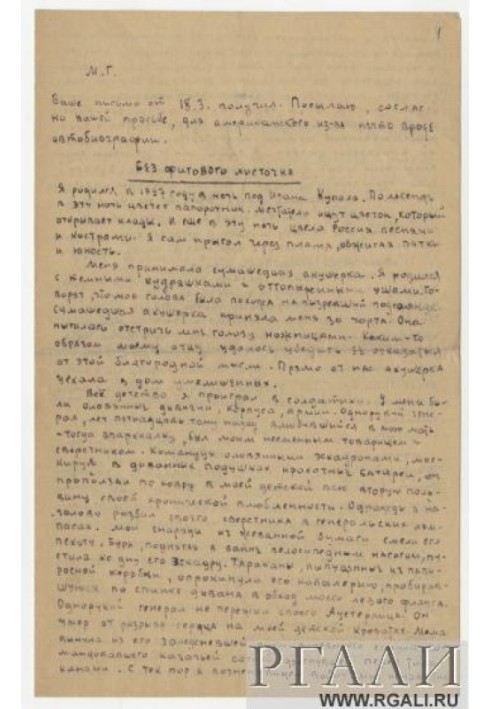 1
М.Г.
Ваше письмо от 18.3. получил. Посылаю, соглас-
но вашей просьбе, для американского из-ва нечто вроде
автобиографии.
Без фигового листочка
Я родился в 1897 году в ночь под Ивана Купала. По легенде
в эту ночь цветет папоротник. Мечтатели ищут цветок, который
открывает клады. И еще в эту ночь цвела Россия песнями
и кострами. Я сам прыгал через пламя, обжигая пятки
и юность.
Меня принимала сумашедшая акушерка. Я родился
с темными кудряшками и оттопыренными ушами. Го-
ворят, что моя голова была похожа на
сумашедшая акушерка приняла меня за чорта. Она
пыталась отстричь мне голову ножницами. Каким-то
образом моему отцу удалось убедить ее отказаться
от этой благородной мысли. Прямо от нас акушерка
уехала в дом умалишенных.
Всё детство я проиграл в солдатики. У меня бы-
ли оловянные дивизии, корпуса, армии. Однорукий гене-
рал, лет пятнадцать тому назад влюбившийся в мою мать
-тогда епархиалку, был моим неизменным товарищем и
сверстником. Командуя оловянными эскадронами, мас-
кируя в диванных подушках крохотные батареи, он
проползал по ковру в моей детской всю вторую поло-
вину своей хронической влюбленности. Однажды я на-
голову разбил своего сверстника в генеральских лам-
пасах. Мои снаряды из жеванной бумаги смели его
пехоту. Буря, поднятая в ванне велосипедным насосом, пу-
стила ко дну его эскадру. Тараканы, выпущенные из папи-
росной коробки, опрокинули его кавалерию, пробирав-
шуюся по спинке дивана в обход моего левого фланга.
Однорукий генерал не пережил своего Аустерлица. Он
умер от разрыва сердца на моей детской кроватке. Мама
вынула из его
командовавшего казачьей
канами. С тех пор я
РГАЛИ
WWW.RGALI.RU